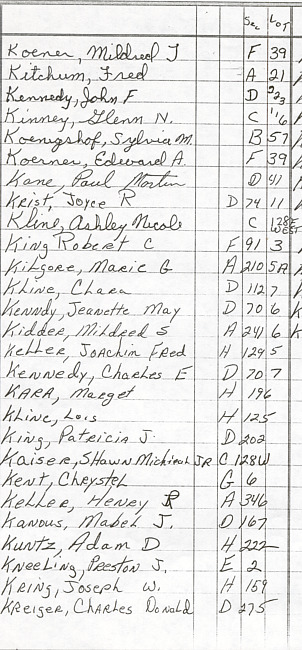 Sec Lot
Koener, Mildred J F 39
Kitchum, Fred A 21
Kennedy, John F D 223
Kinney, Glenn N. C 116
Koenigshof, Sylvia M. B 57
Koerner, Edward A. F 39
Kane, Paul Morton D 41
Krist, Joyce R D 74 11
Kline, Ashley Nicole C 128E WEST
King Robert C F 91 3
Kilgore, Marie G A 210 5A
Kline, Chara D 112 7
Kenndy, Jeanette May D 70 6
Kidder, Mildred S A 241 6
Keller, Joachin Fred H 129 5
Kennedy, Charles E D 70 7
KARR, Marget H 196
Kline, Lois H 125
King, Patricia J. D 202
Kaiser, Shawn Michieal JR C 128W
Kent, Chrystel G 6
Keller, Henry R A 346
Kanous, Mabel J. D 167
Kuntz, Adam D H 222
Kneeling, Preston J. E 2
Kring, Joseph W. H 159
Kreiger, Charles Donald D 275